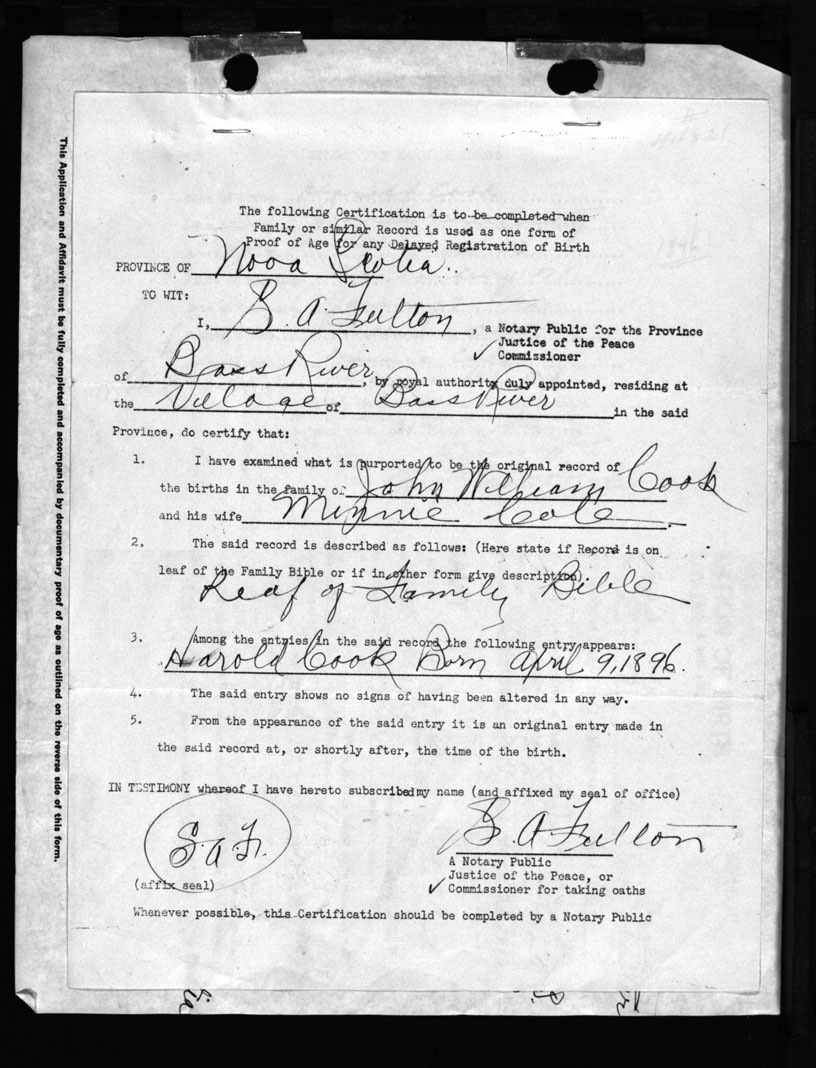 The following Certification is to be completed when
Family or similar Record is used as one form of
Proof of Age for any Delayed Registration of Birth
PROVINCE OF Nova Scotia.
TO WIT:
I, S. A Fulton, a Notary Public for the Province
✓ Justice of the Peace
Commissioner
of Bass River, by royal authority duly appointed, residing at
the Village of Bass River in the said
Province, do certify that:
1. I have examined what is purported to be the original record of
the births in the family of John William Cook
and his wife Minnie Cole.
2. The said record is described as follows: (Here state if Record is on
leaf of the Family Bible or if in other form give description).
Leaf of Family Bible
3. Among the entries in the said record the following entry appears:
Harold Cook Born April 9, 1896.
4. The said entry shows no signs of having been altered in any way.
5. From the appearance of the said entry it is an original entry made in
the said record at, or shortly after, the time of the birth.
IN TESTIMONY whereof I have hereto subscribed my name (and affixed my seal of office)
S. A. F.
S. A Fulton
A Notary Public
Justice of the Peace, or
(affix seal) ✓ Commissioner for taking oaths
Whenever possible, this Certification should be completed by a Notary Public
This Application and Affidavit must be fully completed and accompanied by documentary proof of age as outlined on the reverse side of this form.